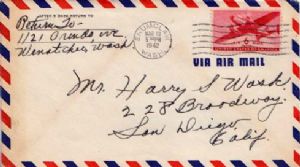 AFTER 5 DAYS RETURN TO
Return to-
1121 Orondo, ave
Wenatchee Wash
WASH.
1942
UNITED STATES OF AMERICA
VIA AIR MAIL
Mr. Harry S Wask.
228 Broadway.
San Diego
Calif.